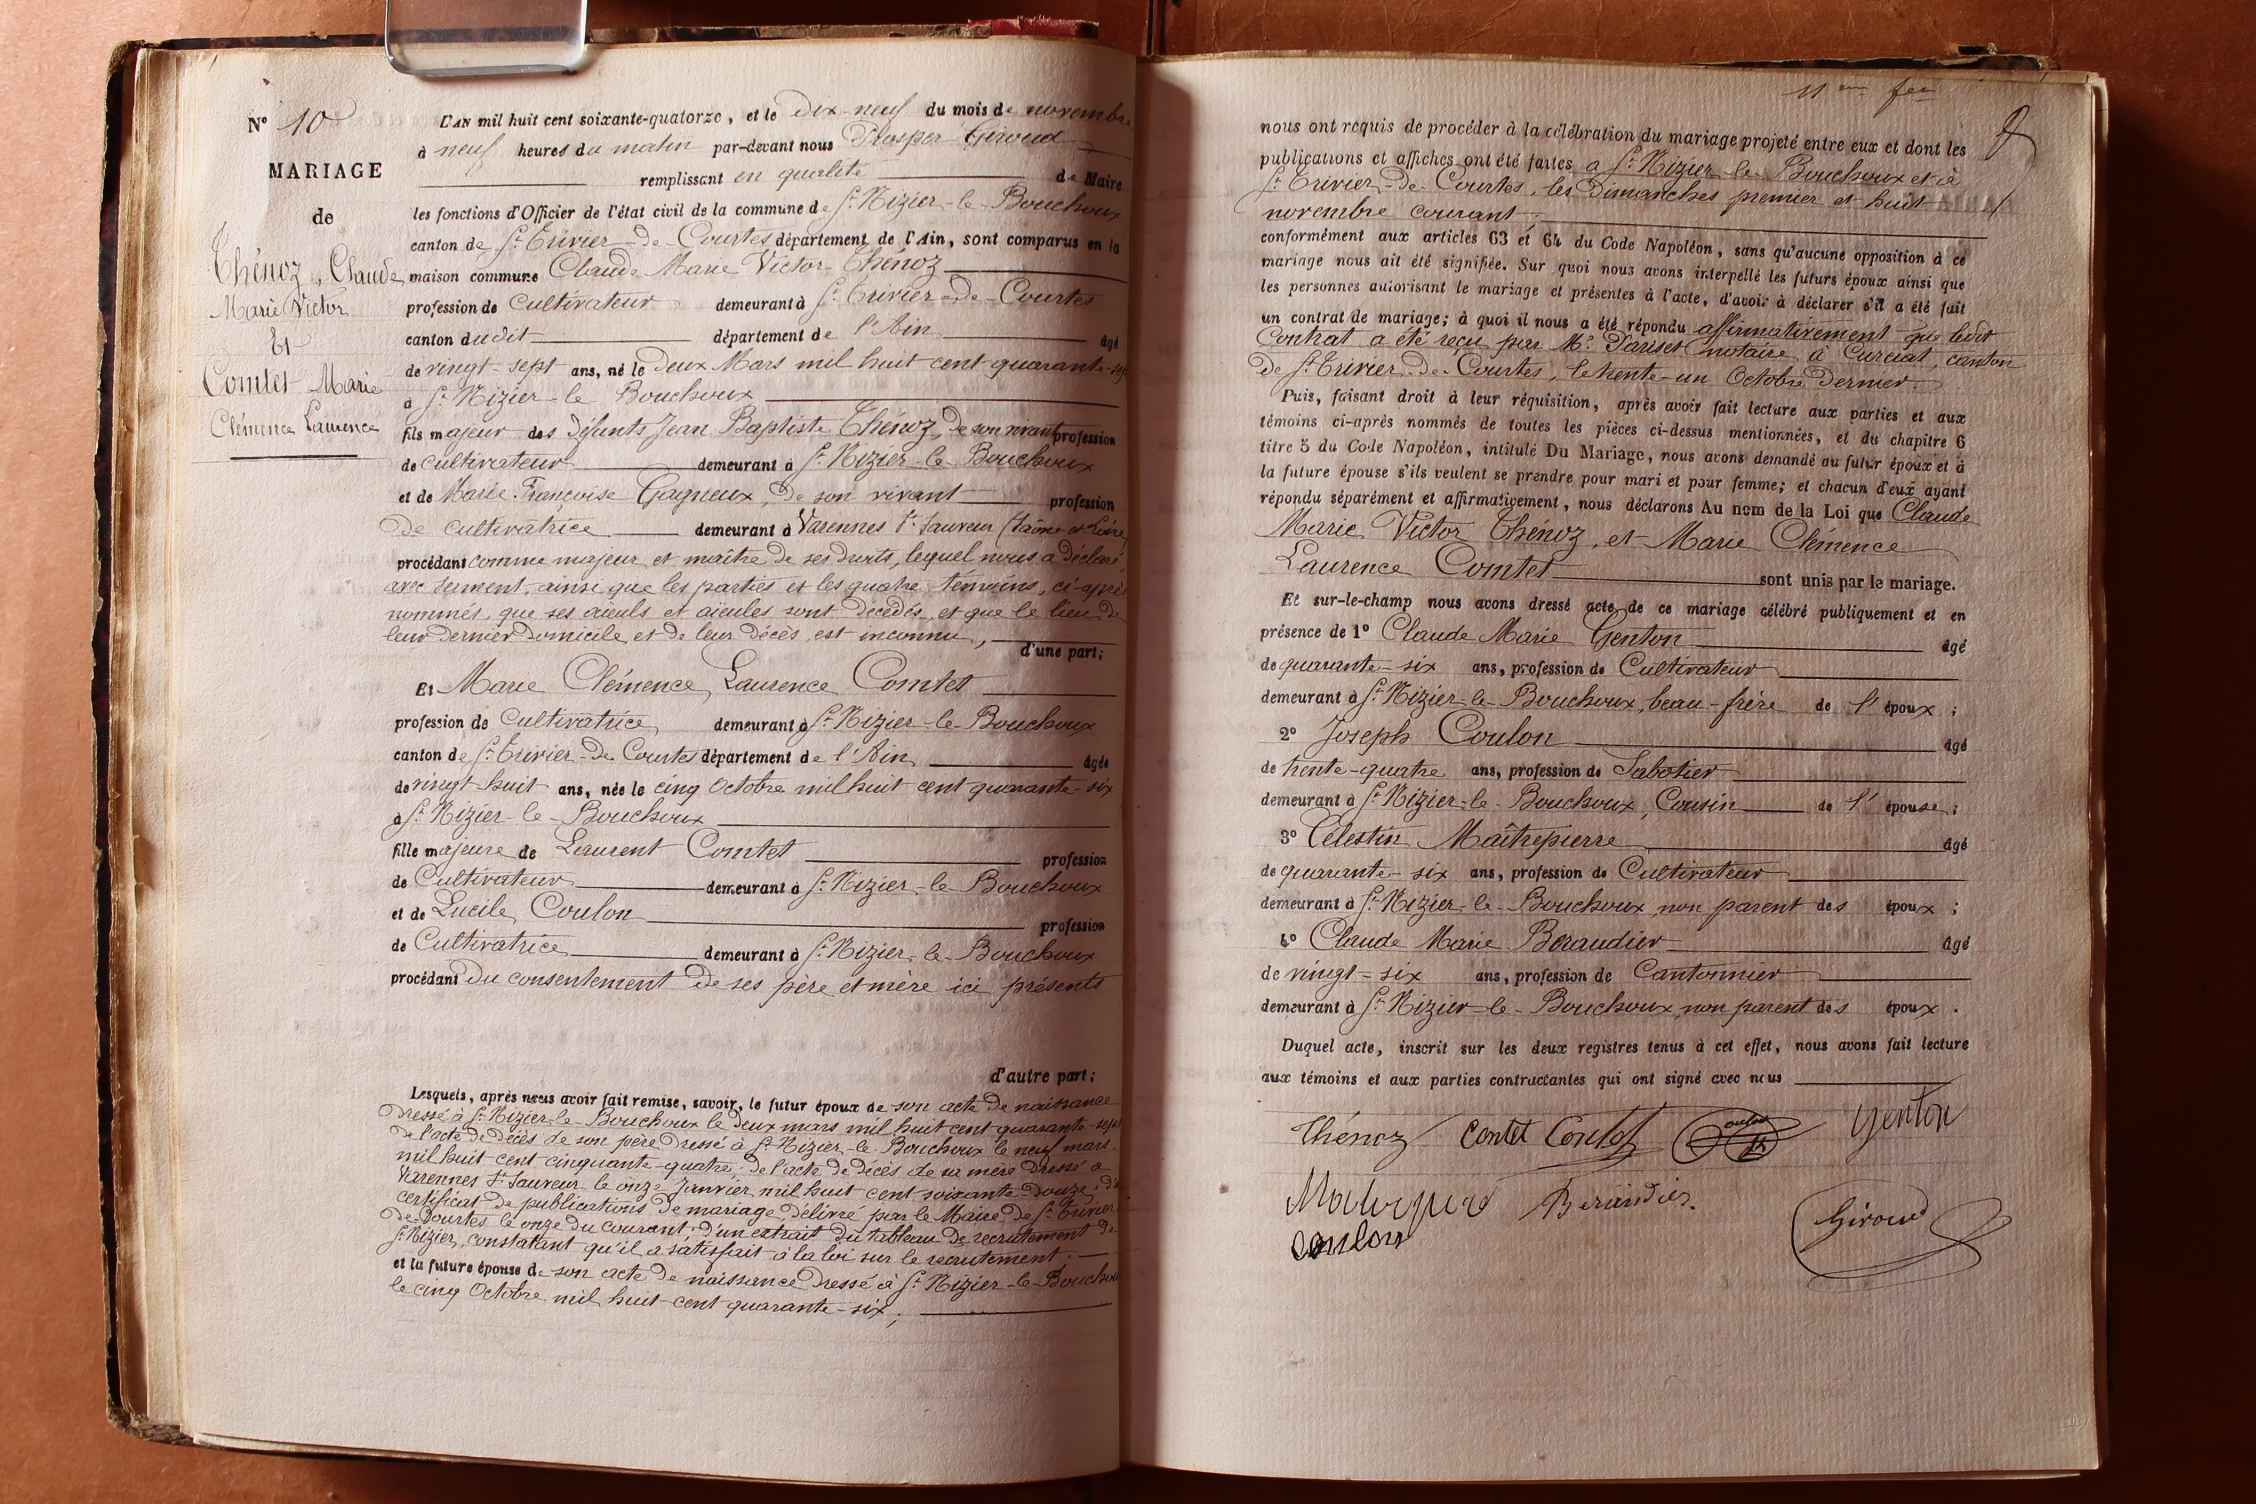 N° 10
MARIAGE
de
Thénoz, Claude
Marie Victor
Et
Comtet Marie
Clémence Laurence
L'AN mil huit cent soixante-quatorze, et le dix-neuf du mois de novembre
à neuf heures du matin par-devant nous Prosper Giroud
remplissant en qualité de Maire
les fonctions d'Officier de l'état civil de la commune de St Nizier-le-Bouchoux
canton de St Trivier-de-Courtes département de l'Ain, sont comparus en la
maison commune Claude Marie Victor Thénoz
profession de Cultivateur demeurant à St Trivier-de-Courtes
canton dudit département de l'Ain âgé
de vingt-sept ans, né le deux Mars mil huit cent quarante-sept
à St Nizier-le Bouchoux
fils majeur des défunts Jean Baptiste Thénoz, de son vivant profession
de cultivateur demeurant à St Nizier-le Bouchoux
et de Marie Françoise Gagneux, de son vivant profession
de cultivatrice demeurant à Varennes St Sauveur (Saône et Loire
procédant comme majeur et maître de ses droits, lequel nous a déclaré
avec serment, ainsi que les parties et les quatre témoins, ci-après
nommés, que ses aïeuls et aïeules sont décédés, et que le lieu de
leur dernier domicile et de leur décès, est inconnu,
d'une part;
Et Marie Clémence Laurence Comtet
profession de Cultivatrice demeurant à St Nizier-le-Bouchoux
canton de St Trivier-de-Courtes département de l'Ain âgée
de vingt-huit ans, née le cinq Octobre mil huit cent quarante-six
à St Nizier-le-Bouchoux
fille majeure de Laurent Comtet profession
de Cultivateur demeurant à St Nizier-le Bouchoux
et de Lucile Coulon profession
de Cultivatrice demeurant à St Nizier-le-Bouchoux
procédant du consentement de ses père et mère ici présents
d'autre part;
Lesquels, après nous avoir fait remise, savoir, le futur époux de son acte de naissance
dressé à St Nizier-le-Bouchoux le deux mars mil huit cent quarante-sept
de l'acte de décès de son père dressé à St Nizier-le-Bouchoux le neuf mars
mil huit cent cinquante-quatre; de l'acte de décès de sa mère dressé à
Varennes St Sauveur le onze Janvier mil huit cent soixante-douze; d'un
certificat de publications de mariage délivré par le Maire de St Trivier
de-Courtes le onze du courant; d'un extrait du tableau de recrutement de
St Nizier, constatant qu'il a satisfait à la loi sur le recrutement;
et la future épouse de son acte de naissance dressé à St Nizier-le-Bouchoux
le cinq Octobre mil huit cent quarante-six;
11me fet
nous ont requis de procéder à la célébration du mariage projeté entre eux et dont les
publications et affiches ont été faites à St Nizier-le Bouchoux et à
St Trivier-de-Courtes, les dimanches premier et huit
novembre courant
conformément aux articles 63 et 64 du Code Napoléon, sans qu'aucune opposition à ce
mariage nous ait été signifiée. Sur quoi nous avons interpellé les futurs époux ainsi que
les personnes autorisant le mariage et présentes à l'acte, d'avoir à déclarer s'il a été fait
un contrat de mariage; à quoi il nous a été répondu affirmativement que ledit
Contrat a été reçu par Me Pauset notaire à Curciat, canton
de St Trivier-de-Courtes, le trente-un Octobre dernier.
Puis, faisant droit à leur réquisition, après avoir fait lecture aux parties et aux
témoins ci-après nommés de toutes les pièces ci-dessus mentionnées, et du chapitre 6
titre 5 du Code Napoléon, intitulé Du Mariage, nous avons demandé au futur époux et à
la future épouse s'ils veulent se prendre pour mari et pour femme; et chacun d'eux ayant
répondu séparément et affirmativement, nous déclarons Au nom de la Loi que Claude
Marie Victor Thénoz, et Marie Clémence
Laurence Comtet sont unis par le mariage.
Et sur-le-champ nous avons dressé acte de ce mariage célébré publiquement et en
présence de 1° Claude Marie Genton âgé
de quarante-six ans, profession de Cultivateur
demeurant à St Nizier-le-Bouchoux, beau-frère de l'époux;
2° Joseph Coulon âgé
de trente-quatre ans, profession de Sabotier
demeurant à St Nizier-le-Bouchoux, Cousin de l'épouse;
3° Célestin Maîtrepierre âgé
de quarante-six ans, profession de Cultivateur
demeurant à St Nizier-le-Bouchoux non parent des époux;
4° Claude Marie Beraudier âgé
de vingt-six ans, profession de Cantonnier
demeurant à St Nizier-le-Bouchoux, non parent des époux.
Duquel acte, inscrit sur les deux registres tenus à cet effet, nous avons fait lecture
aux témoins et aux parties contractantes qui ont signé avec nous
Thénoz Contet Contet Coulon Genton
Beraudier
Giroud
Coulon